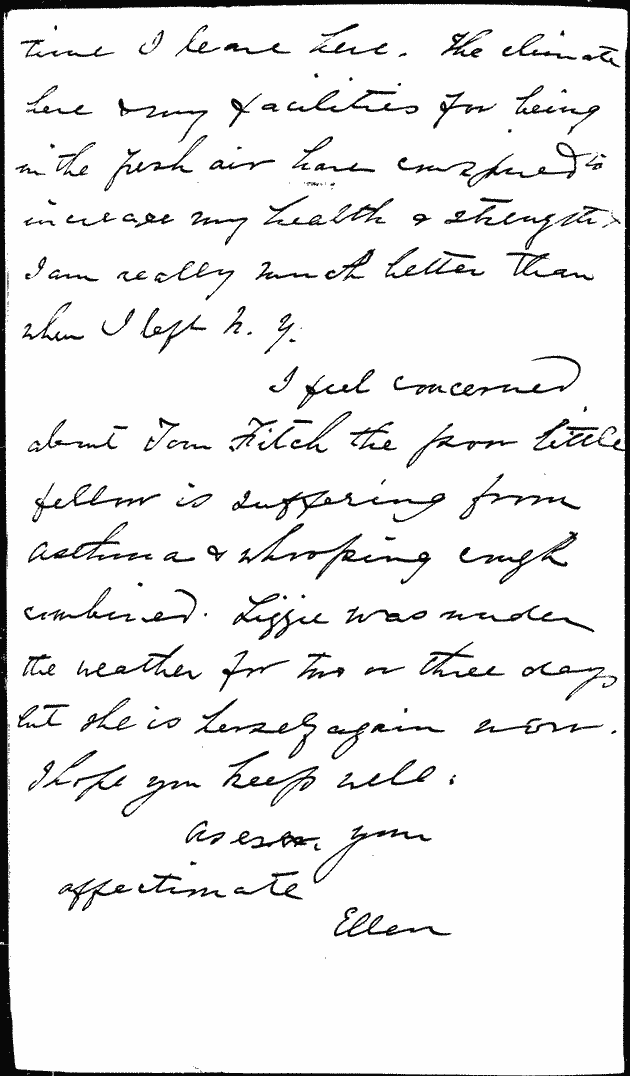 time I leave here. The climate
here & my facilities for being
in the fresh air have conspired to
increase my health & strength &
I am really much better than
when I left N. Y.
I feel concerned
about Tom Fitch the poor little
fellow is suffering from
asthma & whooping cough
combined. Lizzie was under
the weather for two or three days
but she is herself again now.
I hope you keep well.
As ever your
affectionate
Ellen